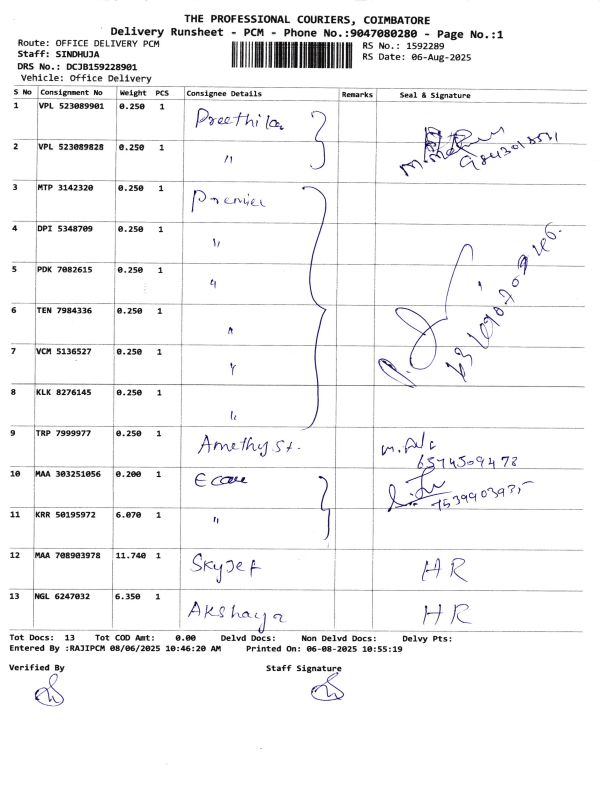 THE PROFESSIONAL COURIERS, COIMBATORE
Delivery Runsheet - PCM - Phone No.:9047080280 - Page No.:1
Route: OFFICE DELIVERY PCM
Staff: SINDHUJA
DRS No.: DCJB159228901
Vehicle: Office Delivery
RS No.: 1592289
RS Date: 06-Aug-2025
S No Consignment No Weight PCS Consignee Details Remarks Seal & Signature
1 VPL 523089901 0.250 1 Preethika
2 VPL 523089828 0.250 1 "
3 MTP 3142320 0.250 1 Premier
4 DPI 5348709 0.250 1 "
5 PDK 7082615 0.250 1 "
6 TEN 7984336 0.250 1 "
7 VCM 5136527 0.250 1 "
8 KLK 8276145 0.250 1 "
9 TRP 7999977 0.250 1 Amethyst.
6574509478
10 MAA 303251056 0.200 1 Ecare
11 KRR 50195972 6.070 1 "
12 MAA 708903978 11.740 1 Skyjet HR
13 NGL 6247032 6.350 1 Akshaya HR
Tot Docs: 13 Tot COD Amt: 0.00 Delvd Docs: Non Delvd Docs: Delvy Pts:
Entered By :RAJIPCM 08/06/2025 10:46:20 AM Printed On: 06-08-2025 10:55:19
Verified By Staff Signature